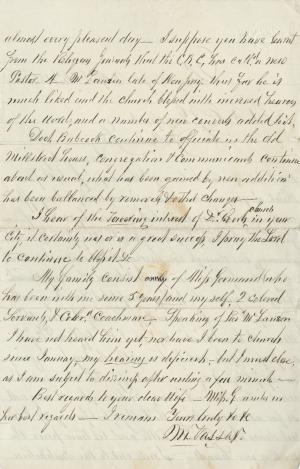 almost every pleasant day — I suppose you have learnt
from the that the has call'd a new
Pastor. A. Mc Lauren late of thus far he is
much liked and the church blessed with increased hearers
of the Word, and a number of new converts added to it.
Doct Babcock continues to officiate in the old
Mill Street House, congregation & Communicants continue
about as usual, what has been gained by new additions
has been ballanced by removals & other changes —
I hear of the interest of Dr church in your
City, it certainly is a great success, I pray the Lord
to continue to bless it &c
My family consist of Miss Germond (who
has been with me some 5 years) and my self, 2 colored
Servants, & Coachman — Speaking of Mr Mc Lauren
I have not heard him yet, nor have I been to church
since January, my hearing is difficult — but I must close,
as I am subject to after writing a few minutes —
Best regards to your dear Wife — Miss G. unites in
her best regards — I remain Yours truly &c &c
M. Vassar.